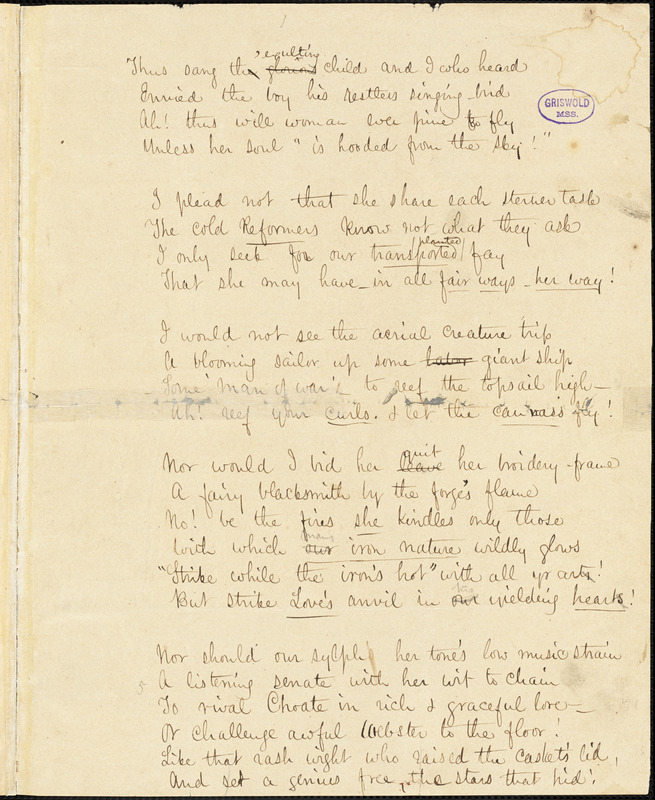 exulting
Thus sang the glorious child and I who heard
Envied the boy his restless singing-bird
Ah! thus will woman ever pine to fly
Unless her soul "is hooded from the sky!"
GRISWOLD
MSS.
I plead not that she share each sterner task
The cold Reformers know not what they ask
planted
I only seek for our transported fay
That she may have - in all fair ways - her way!
I would not see the aerial creature trip
A blooming sailor up some labor giant ship
Some man of war's to reef the topsail high -
Ah! reef your curls. & let the canvass fly!
quit
Nor would I bid her leave her broidery-frame
A fairy blacksmith by the forge's flame
No! be the fires she kindles only those
mans
With which our iron nature wildly glows
"Strike while the iron's hot" with all yr arts!
But strike Love's anvil in our yielding hearts!
Nor should our sylph her tone's low music strain
A listening senate with her wit to chain
To rival Choate in rich & graceful lore -
Or challenge awful Webster to the floor!
Like that rash wight who raised the casket's lid,
And set a genius free, the stars that hid!